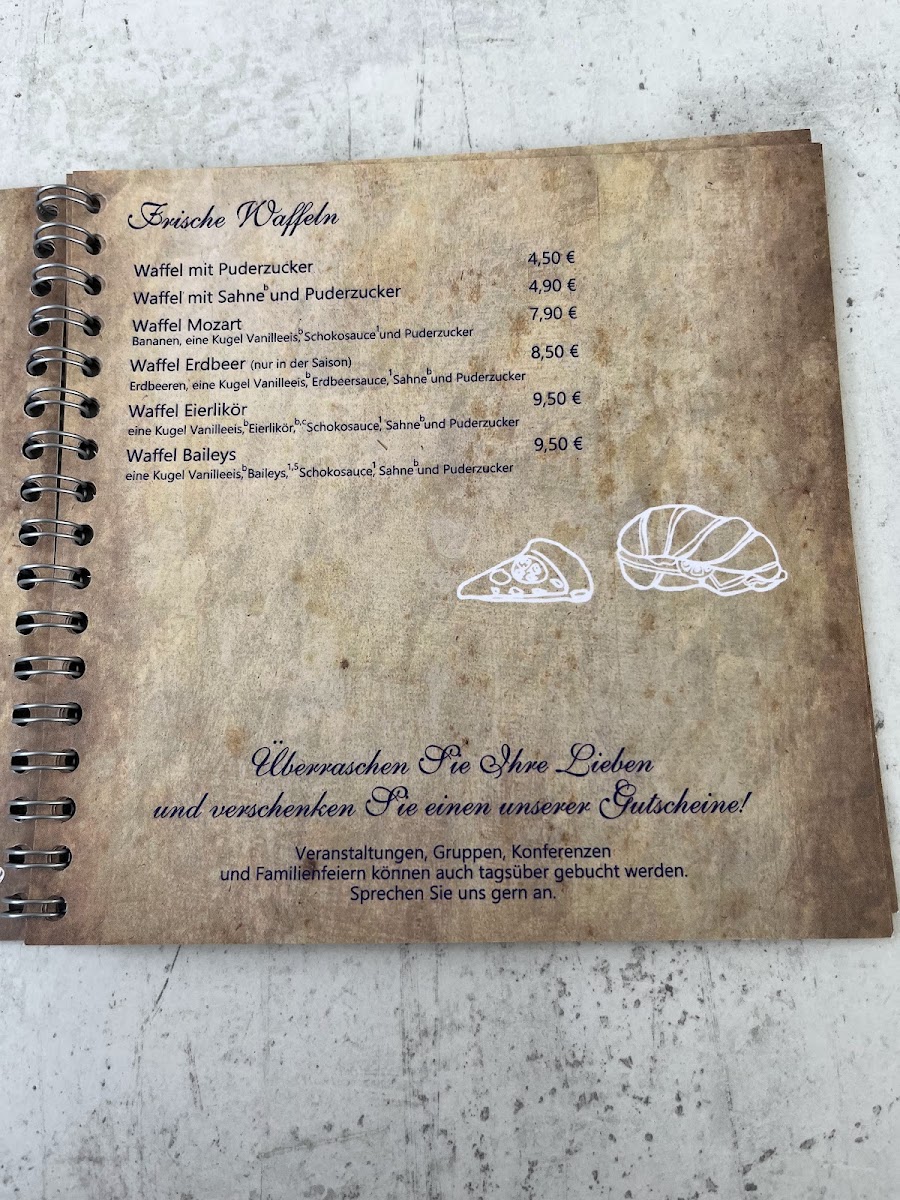 Frische Waffeln
Waffel mit Puderzucker 4,50 €
Waffel mit Sahneᵇ und Puderzucker 4,90 €
Waffel Mozart 7,90 €
Bananen, eine Kugel Vanilleeis,ᵇ Schokosauce¹ und Puderzucker
Waffel Erdbeer (nur in der Saison) 8,50 €
Erdbeeren, eine Kugel Vanilleeis,ᵇ Erdbeersauce,¹ Sahneᵇ und Puderzucker
Waffel Eierlikör 9,50 €
eine Kugel Vanilleeis,ᵇ Eierlikör,ᵇ,ᶜ Schokosauce,¹ Sahneᵇ und Puderzucker
Waffel Baileys 9,50 €
eine Kugel Vanilleeis,ᵇ Baileys,¹,⁵ Schokosauce,¹ Sahneᵇ und Puderzucker
Überraschen Sie Ihre Lieben
und verschenken Sie einen unserer Gutscheine!
Veranstaltungen, Gruppen, Konferenzen
und Familienfeiern können auch tagsüber gebucht werden.
Sprechen Sie uns gern an.